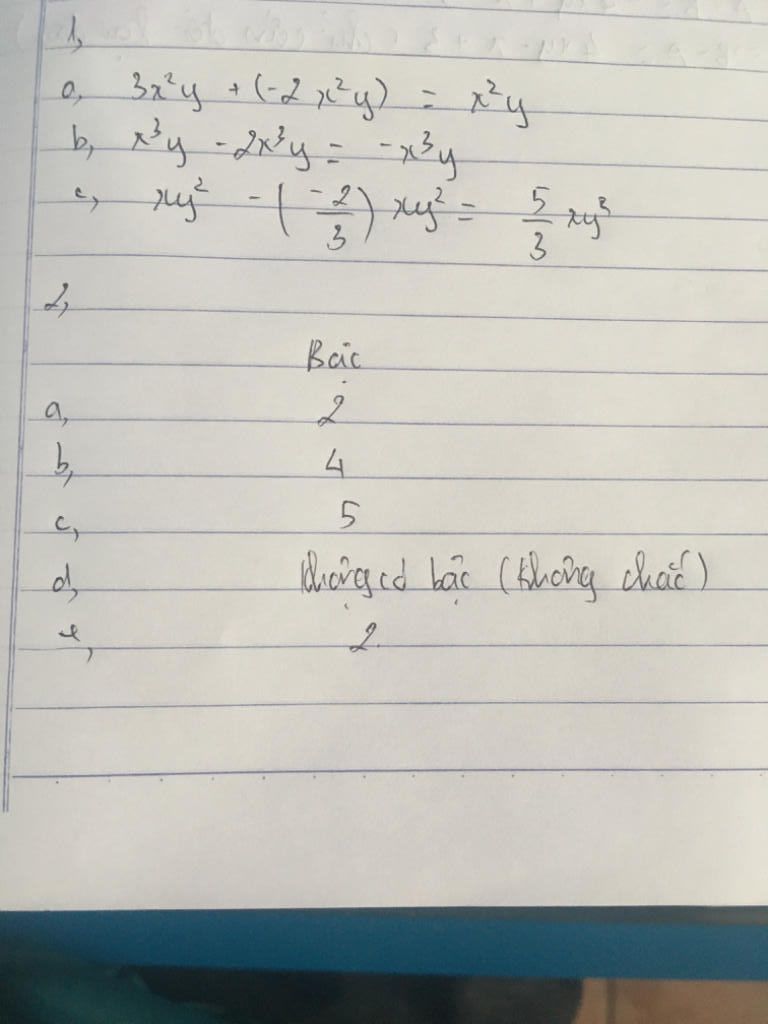 1,
a, 3x²y + (-2x²y) = x²y
b, x³y - 2x³y = -x³y
c, xy² - (-2/3) xy² = 5/3 xy³
2,
Bậc
a, 2
b, 4
c, 5
d, Không có bậc (không chắc)
e, 2